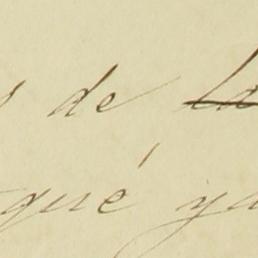 s de la
qué ya